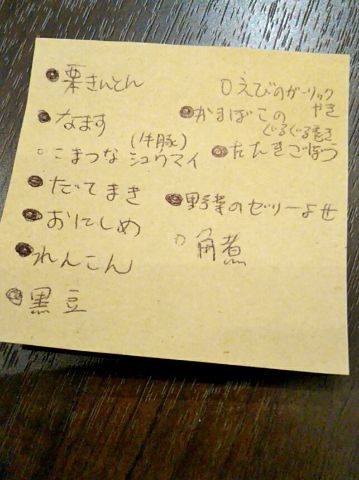 ●栗きんとん
●なます
○こまつなシュウマイ
(牛豚)
●だてまき
●おにしめ
●れんこん
●黒豆
○えびのガーリック
やき
●かまぼこの
ぐるぐる巻き
●たたきごぼう
●野菜のゼリーよせ
○角煮